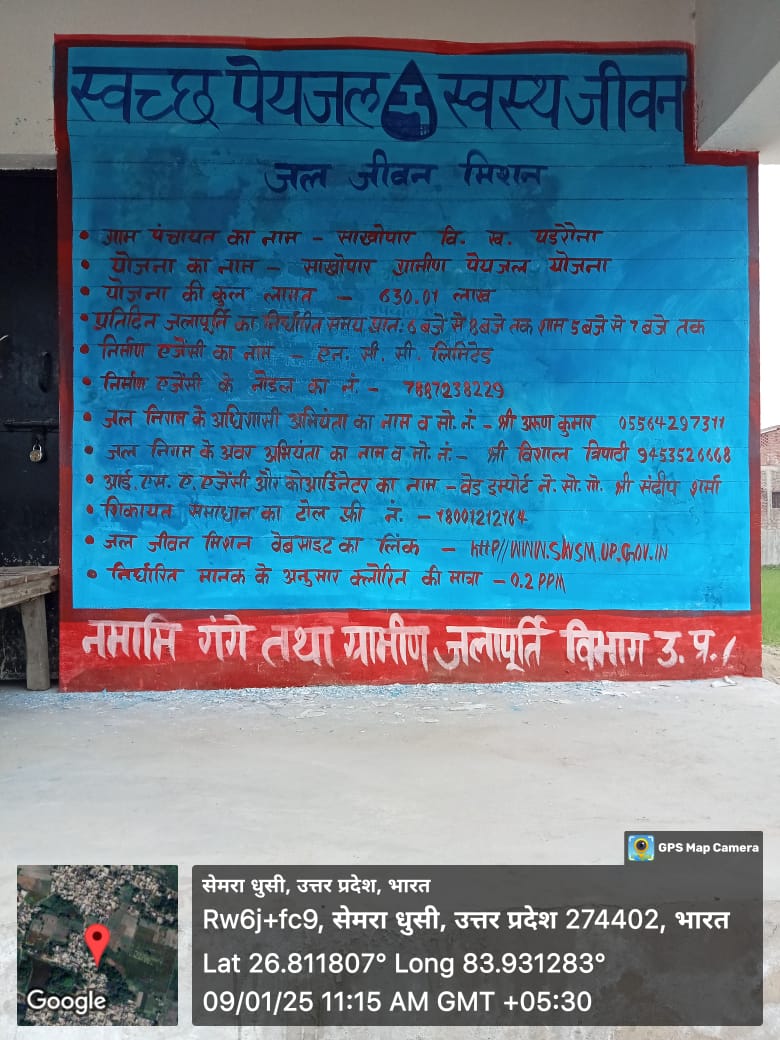 स्वच्छ पेयजल स्वस्थ जीवन
जल जीवन मिशन
• ग्राम पंचायत का नाम - साखोपार वि. ख. पडरौना
• योजना का नाम - साखोपार ग्रामीण पेयजल योजना
• योजना की कुल लागत - 630.01 लाख
• प्रतिदिन जलापूर्ति का निर्धारित समय प्रात: 6 बजे से 8 बजे तक शाम 5 बजे से 7 बजे तक
• निर्माण एजेंसी का नाम - एन. सी. सी. लिमिटेड
• निर्माण एजेंसी के नोडल का नं. - 7887238229
• जल निगम के अधिशासी अभियंता का नाम व मो. नं. - श्री अरुण कुमार 05564297311
• जल निगम के अवर अभियंता का नाम व मो. नं. - श्री विशाल त्रिपाठी 9453526668
• आई. एस. ए. एजेंसी और कोआर्डिनेटर का नाम - वेड इम्पोर्ट ने. सो. गो. श्री संदीप शर्मा
• शिकायत समाधान का टोल फ्री नं. - 18001212164
• जल जीवन मिशन वेबसाइट का लिंक - HTTP//WWW.SWSM.UP.GOV.IN
• निर्धारित मानक के अनुसार क्लोरिन की मात्रा - 0.2 PPM
नमामि गंगे तथा ग्रामीण जलापूर्ति विभाग उ. प्र. /
GPS Map Camera
सेमरा धुसी, उत्तर प्रदेश, भारत
Rw6j+fc9, सेमरा धुसी, उत्तर प्रदेश 274402, भारत
Lat 26.811807° Long 83.931283°
09/01/25 11:15 AM GMT +05:30
Google